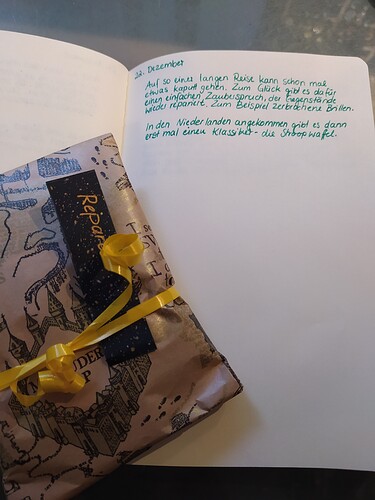 22. Dezember
Auf so einer langen Reise kann schon mal
etwas kaputt gehen. Zum Glück gibt es dafür
einen einfachen Zauberspruch, der Gegenstände
wieder repariert. Zum Beispiel zerbrochene Brillen.
In den Niederlanden angekommen gibt es dann
erst mal einen Klassiker - die Stroopwaffel.
Repar